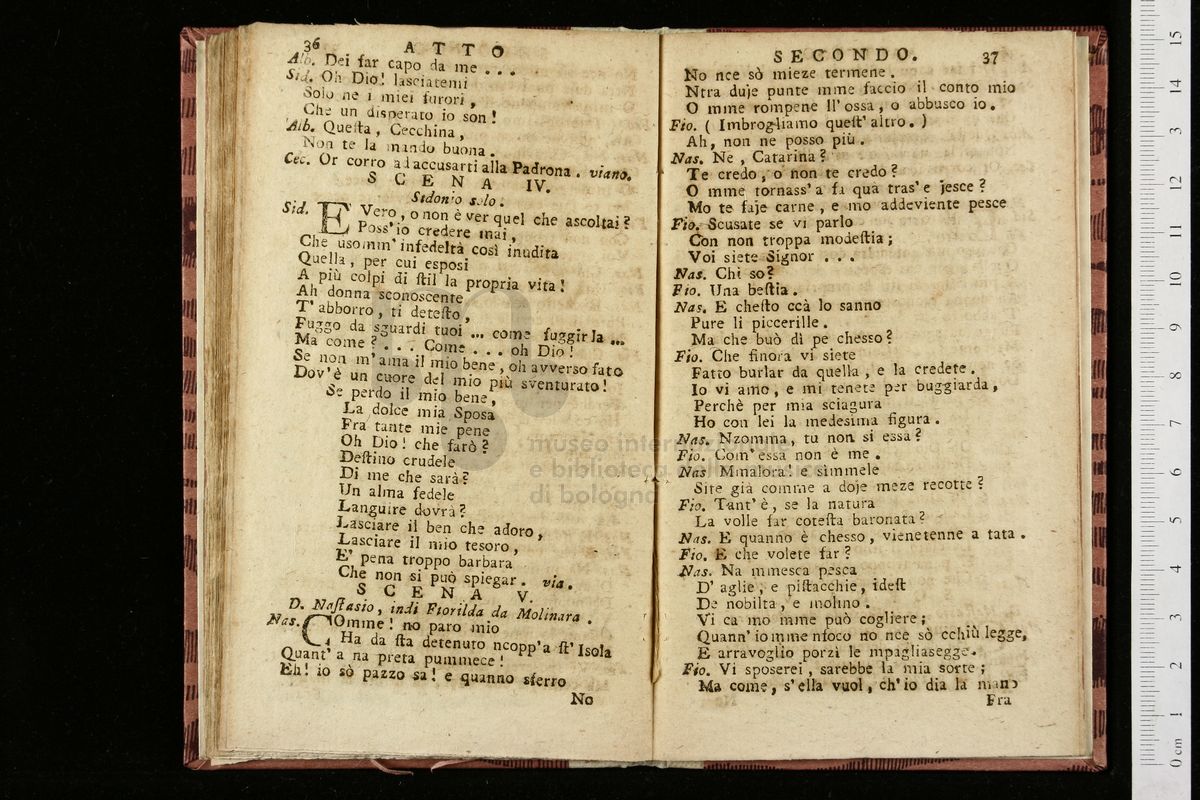 36 ATTO
Alb. Dei far capo da me . . .
Sid. Oh Dio! lasciatemi
Solo ne i miei furori ,
Che un disperato io son !
Alb. Queſta , Cecchina ,
Non te la mando buona .
Cec. Or corro ad accusarti alla Padrona . viano.
SCENA IV.
Sidonio solo .
Sid. E' Vero , o non è ver quel che ascoltai ?
Poss' io credere mai ,
Che usomm' infedeltà così inudita
Quella , per cui esposi
A più colpi di ſtil la propria vita !
Ah donna sconoscente
T' abborro , ti deteſto ,
Fuggo da sguardi tuoi ... come fuggirla ...
Ma come ? . . . Come . . . oh Dio !
Se non m' ama il mio bene , oh avverso fato
Dov' è un cuore del mio più sventurato !
Se perdo il mio bene ,
La dolce mia Sposa
Fra tante mie pene
Oh Dio ! che farò ?
Deſtino crudele
Di me che sarà ?
Un alma fedele
Languire dovrà ?
Lasciare il ben che adoro ,
Lasciare il mio tesoro ,
E' pena troppo barbara
Che non si può spiegar . via .
SCENA V.
D. Naſtasio , indi Fiorilda da Molinara .
Nas. COmme ! no paro mio
Ha da ſta detenuto ncopp' a ſt' Isola
Quant' a na preta pummece !
Eh ! io sò pazzo sa ! e quanno sferro
No
SECONDO. 37
No nce sò mieze termene .
Ntra duje punte mme faccio il conto mio
O mme rompene ll' ossa , o abbusco io .
Fio. ( Imbrogliamo queſt' altro . )
Ah , non ne posso più .
Nas. Nè , Catarina ?
Te credo , o non te credo ?
O mme tornass' a fa qua tras' e jesce ?
Mo te faje carne , e mo addeviente pesce
Fio. Scusate se vi parlo
Con non troppa modeſtia ;
Voi siete Signor . . .
Nas. Chi so ?
Fio. Una beſtia .
Nas. E cheſto ccà lo sanno
Pure li piccerille .
Ma che buò dì pe chesso ?
Fio. Che finora vi siete
Fatto burlar da quella , e la credete .
Io vi amo , e mi tenete per buggiarda ,
Perchè per mia sciagura
Ho con lei la medesima figura .
Nas. Nzomma , tu non si essa ?
Fio. Com' essa non è me .
Nas Mmalora ! e simmele
Site già comme a doje meze recotte ?
Fio. Tant' è , se la natura
La volle far coteſta baronata ?
Nas. E quanno è chesso , vienetenne a tata .
Fio. E che volete far ?
Nas. Na mmesca pesca
D' aglie , e piſtacchie , ideſt
De nobilta , e molino .
Vi ca mo mme può cogliere ;
Quann' io mme nfoco no nce sò cchiù legge ,
E arravoglio porzì le mpagliasegge .
Fio. Vi sposerei , sarebbe la mia sorte ;
Ma come , s' ella vuol , ch' io dia la mano
Fra
museo internazionale
e biblioteca della musica
di bologna
0 cm 1 2 3 4 5 6 7 8 9 10 11 12 13 14 15